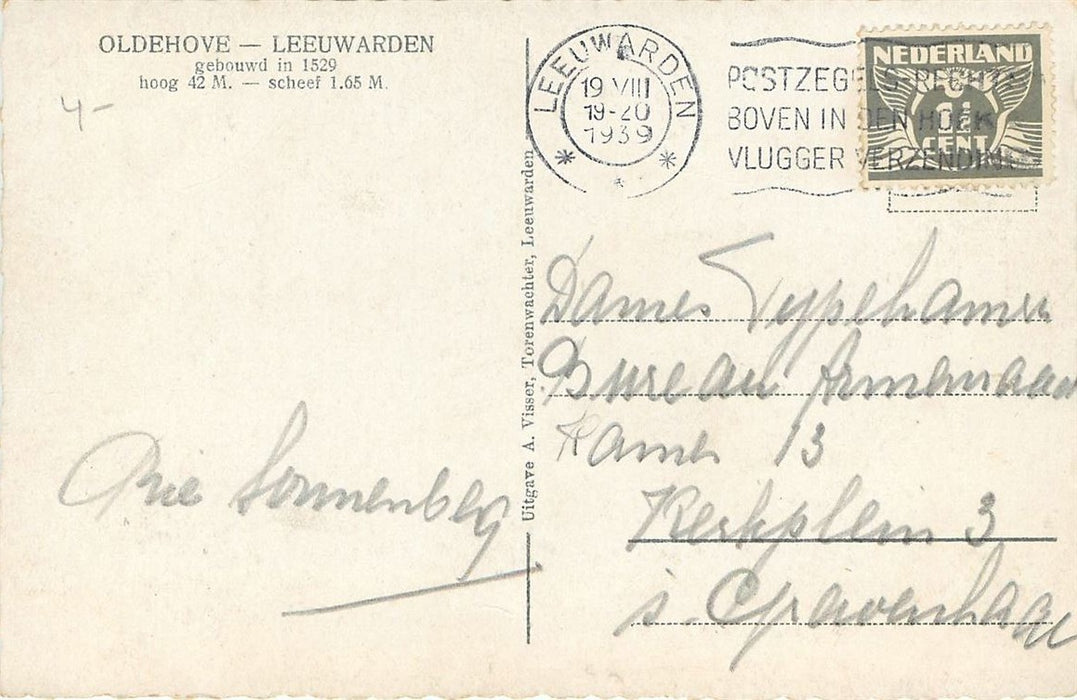 OLDEHOVE — LEEUWARDEN
gebouwd in 1529
hoog 42 M. — scheef 1.65 M.
4-
LEEUWARDEN
19 VIII
19-20
1939
POSTZEGELS RECHTS
BOVEN IN DEN HOEK
VLUGGER VERZENDING
NEDERLAND
1½
CENT
Uitgave A. Visser, Torenwachter, Leeuwarden
Dames Typekamer
Bureau Armenraad
Kamer 13
Kerkplein 3
s. Gravenhage
Sonnenberg